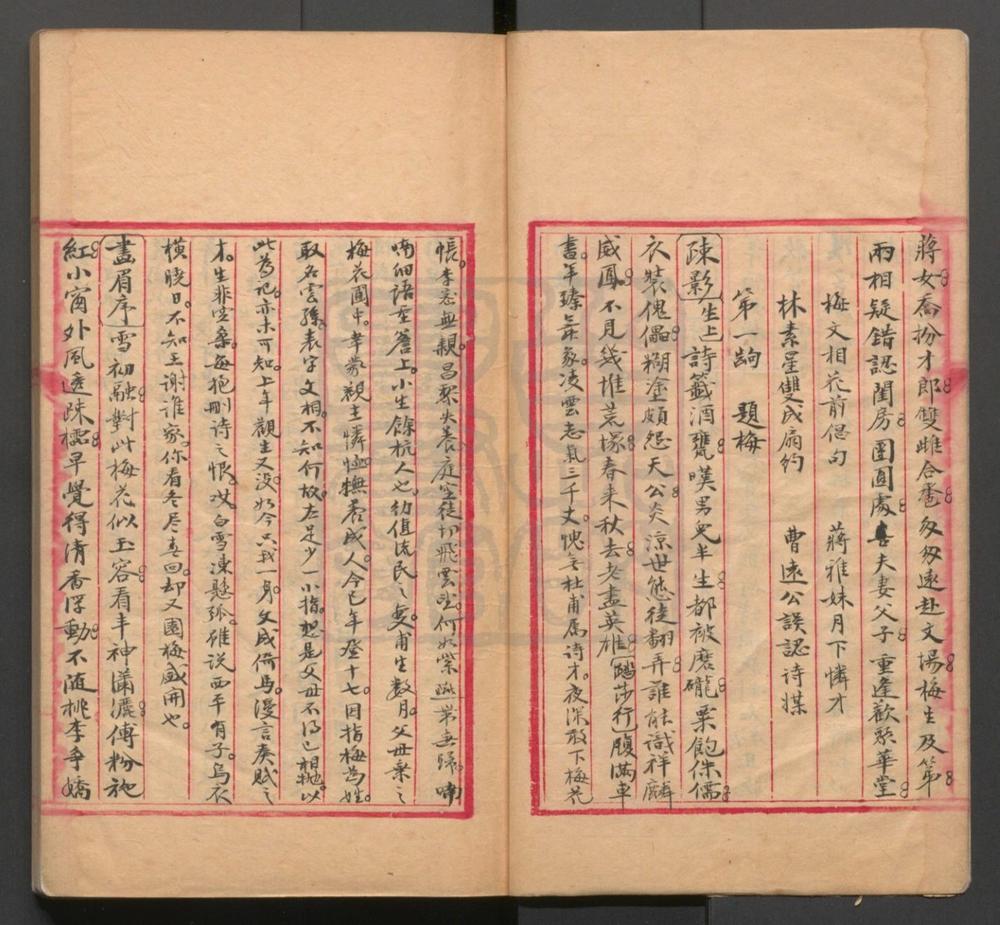 蔣女喬扮才郎雙雌合巹匆匆遠赴文場梅生及第
兩相疑錯認閨房團圓處喜夫妻父子重逢歡聚華堂
梅文相花前偲句　蔣雅妹月下憐才
林素星雙成扇約　曹遠公誤認詩媒
第一齣　題梅
疎影 生上 詩籤酒甕嘆男兒半生都被磨礲粟飽侏儒
衣裝傀儡糊塗頗怨天公炎涼世態徒翻弄誰能識祥麟
威鳳不見幾堆荒塚春来秋去老盡英雄 踏莎行 腹滿車
書年臻象凌雲志氣三千丈愧無杜甫属诗才夜深散下梅花
帳李密無親昌黎失養庭空徒切飛雲望何如紫燕常垂歸喃
喃細語在簷上小生餘杭人也幼值流民之變甫生数月父母棄之
梅花園中幸蒙觀主憐恤撫養成人今已年登十七因指梅為姓
取名雲孫表字文相不知何故左足少一小指想是父母不得已相抛以
此為记亦未可知上年觀主又没如今只我一身文成倚馬漫言奏賦之
才生非空桑每抱刪诗之恨哎白雪凍懸弧雖说西平有子烏衣
橫曉日不知王謝誰家你看冬尽春回却又園梅盛開也
畫眉序 雪初融對此梅花似玉容看丰神瀟灑傅粉施
紅小窗外風透疎櫺早覺得清香浮動不随桃李爭嬌